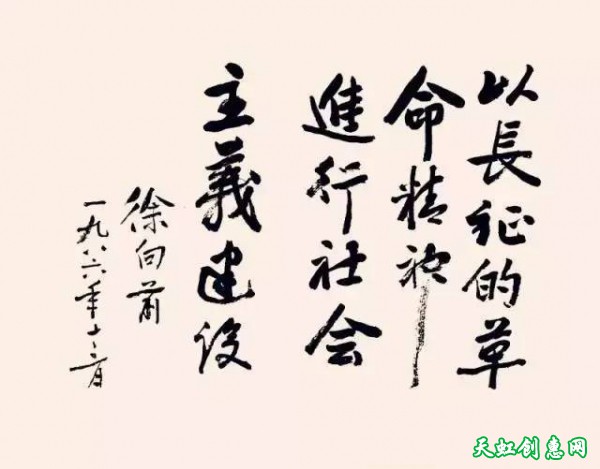 以長征的革
命精神
進行社会
主義建设
徐向前
一九八六年十二月
天虹创惠网